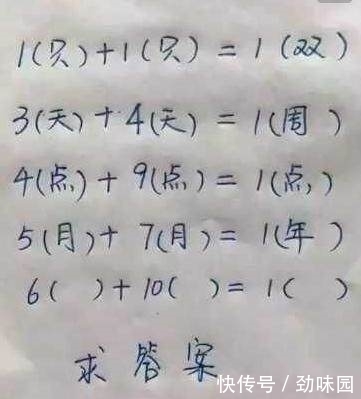 1(只)+1(只)=1(双)
3(天)+4(天)=1(周)
4(点)+9(点)=1(点)
5(月)+7(月)=1(年)
6( )+10( )=1( )
求答案
快传号/劲味园